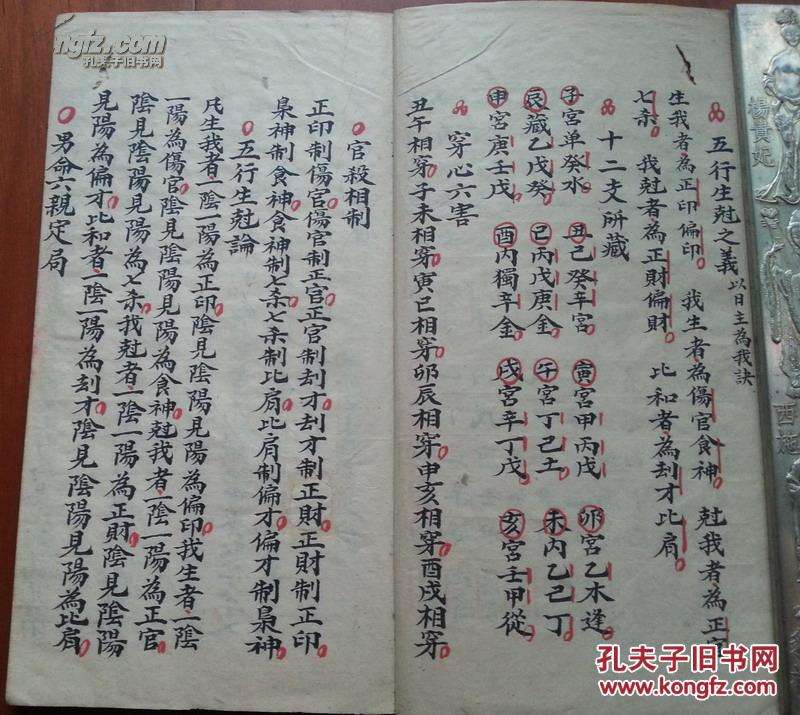 五行生尅之義以日主為我訣
生我者為正印偏印 我生者為傷官食神 尅我者為正官
七杀 我尅者為正財偏財 比和者為刦才比肩
十二支所藏
子宮单癸水 丑己癸辛宮 寅宮甲丙戊 卯宮乙木逢
辰藏乙戊癸 巳丙戊庚金 午宮丁己土 未丙乙己丁
申宮庚壬戊 酉丙獨辛金 戌宮辛丁戊 亥宮壬甲從
穿心六害
丑午相穿子未相穿寅巳相穿卯辰相穿申亥相穿酉戌相穿
官殺相制
正印制傷官傷官制正官正官制刦才刦才制正財正財制正印
梟神制食神食神制七杀七杀制比肩比肩制偏才偏才制梟神
五行生尅論
凡生我者一陰一陽為正印陰見陰陽見陽為偏印我生者一陰
一陽為傷官陰見陰陽見陽為食神尅我者一陰一陽為正官
陰見陰陽見陽為七杀我尅者一陰一陽為正財陰見陰陽
見陽為偏才比和者一陰一陽為刦才陰見陰陽見陽為比肩
男命六親定局
楊貴妃
西施
ngfz.com
孔夫子旧书网
孔夫子旧书网
www.kongfz.com